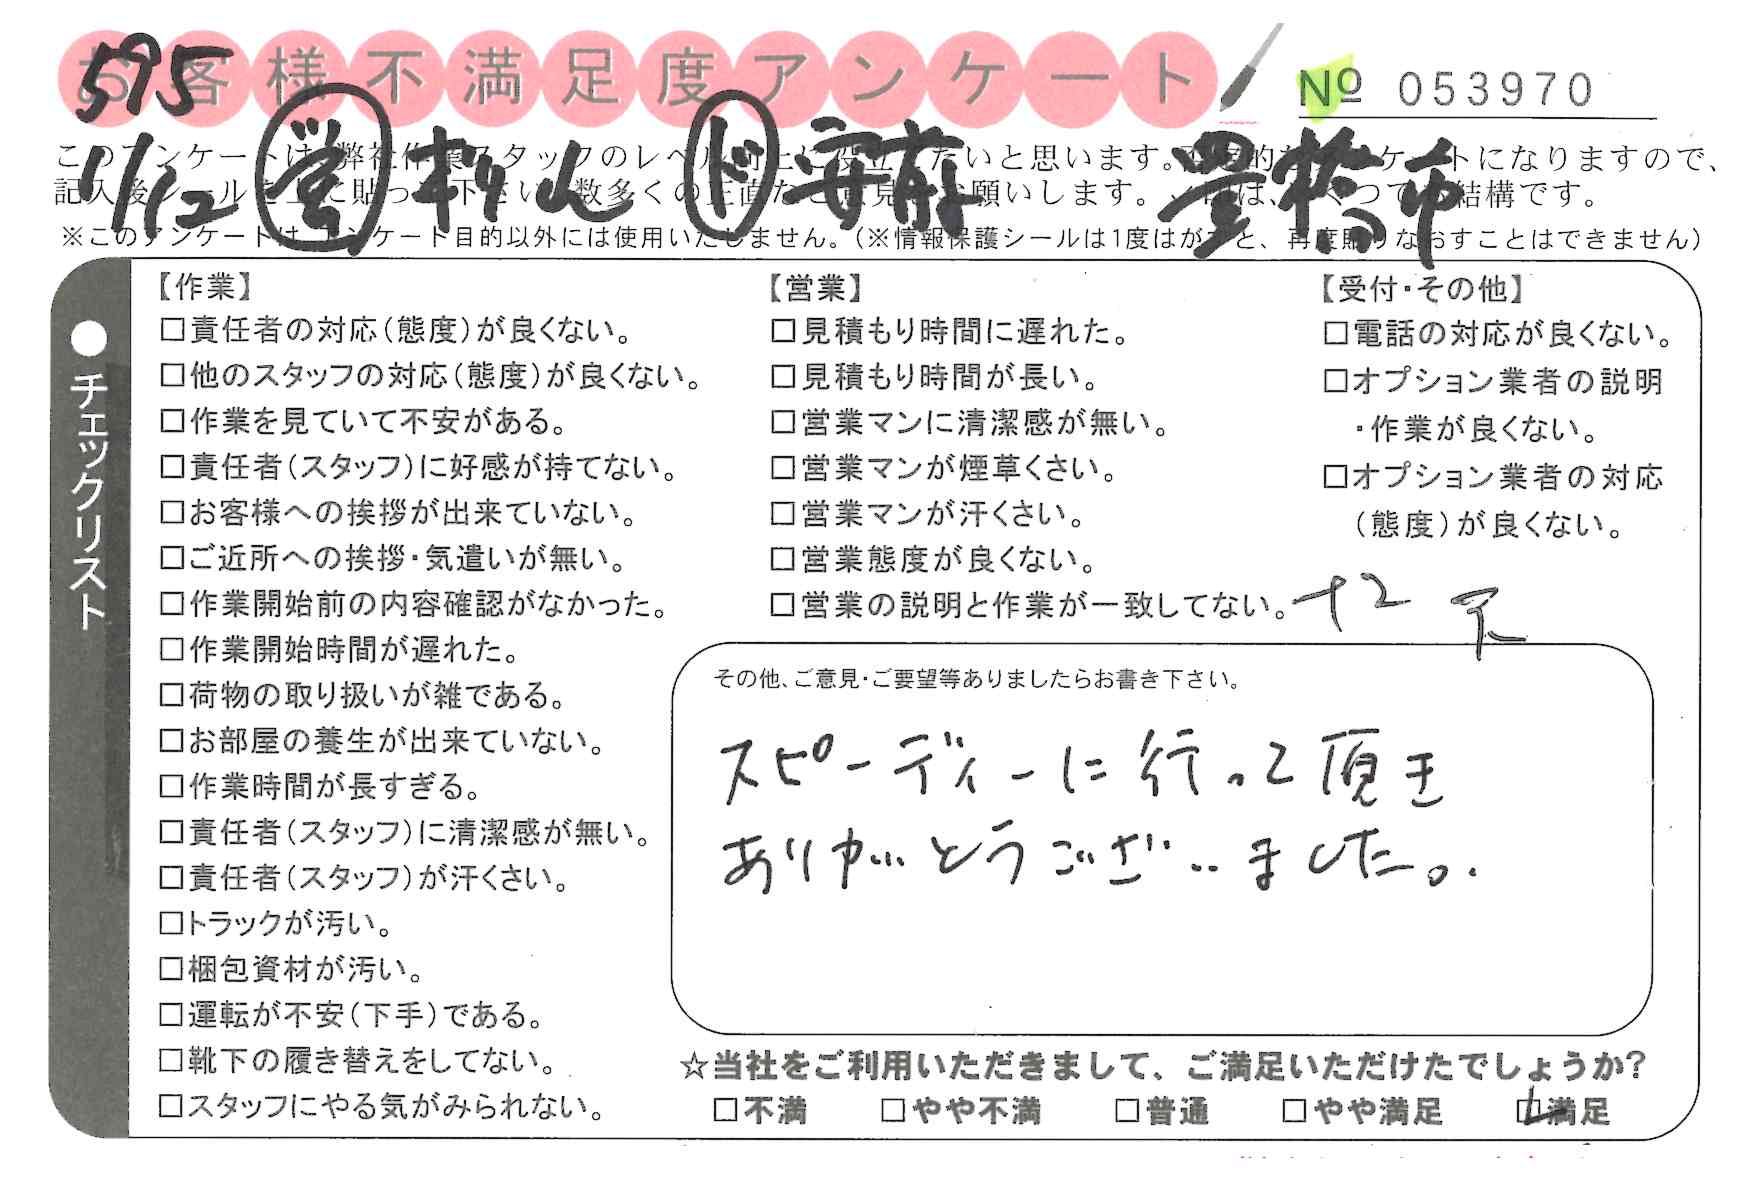 お客様不満足度アンケート
№ 053970
595
1/12 営 ド 安前 豊橋市
このアンケートは、弊社作業スタッフのレベル向上に役立てたいと思います。アンケートになりますので、
記入後シールを上に貼って下さい。数多くの正直なご意見をお願いします。いくつでも結構です。
※このアンケートは、アンケート目的以外には使用いたしません。(※情報保護シールは1度はがすと、再度貼りなおすことはできません)
●チェックリスト
【作業】
□責任者の対応(態度)が良くない。
□他のスタッフの対応(態度)が良くない。
□作業を見ていて不安がある。
□責任者(スタッフ)に好感が持てない。
□お客様への挨拶が出来ていない。
□ご近所への挨拶・気遣いが無い。
□作業開始前の内容確認がなかった。
□作業開始時間が遅れた。
□荷物の取り扱いが雑である。
□お部屋の養生が出来ていない。
□作業時間が長すぎる。
□責任者(スタッフ)に清潔感が無い。
□責任者(スタッフ)が汗くさい。
□トラックが汚い。
□梱包資材が汚い。
□運転が不安(下手)である。
□靴下の履き替えをしてない。
□スタッフにやる気がみられない。
【営業】
□見積もり時間に遅れた。
□見積もり時間が長い。
□営業マンに清潔感が無い。
□営業マンが煙草くさい。
□営業マンが汗くさい。
□営業態度が良くない。
□営業の説明と作業が一致してない。
【受付・その他】
□電話の対応が良くない。
□オプション業者の説明
・作業が良くない。
□オプション業者の対応
(態度)が良くない。
その他、ご意見・ご要望等ありましたらお書き下さい。
スピーディーに行って頂き
ありがとうございました。
☆当社をご利用いただきまして、ご満足いただけたでしょうか?
□不満 □やや不満 □普通 □やや満足 □満足